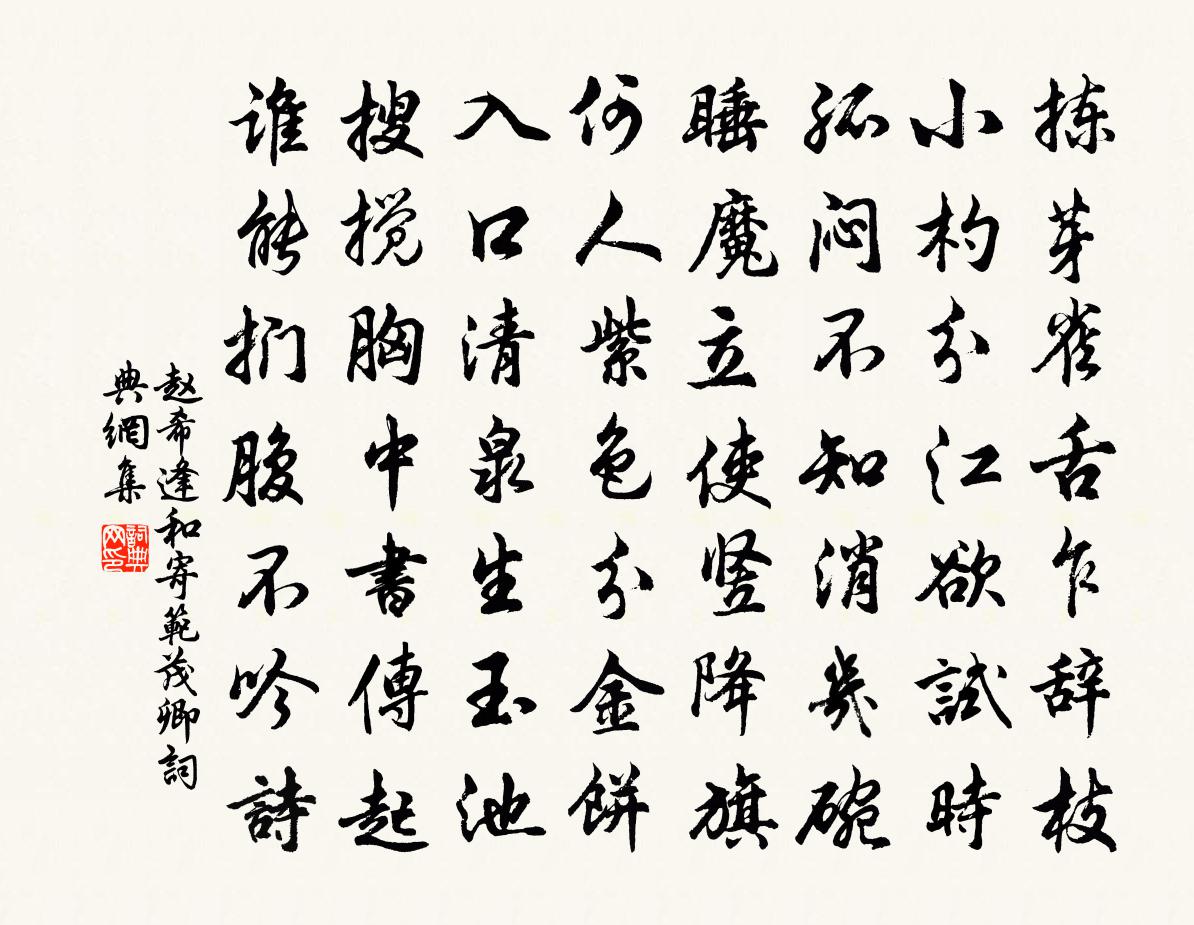 拣芽雀舌乍辞枝
小杓分江欲試時
孤闷不知消幾碗
睡魔立使竖降旗
何人紫色分金餅
入口清泉生玉池
搜搅胸中書傳起
谁能扪腹不吟詩
赵希逢和寄範茂卿詞
典網集
詞典
网印